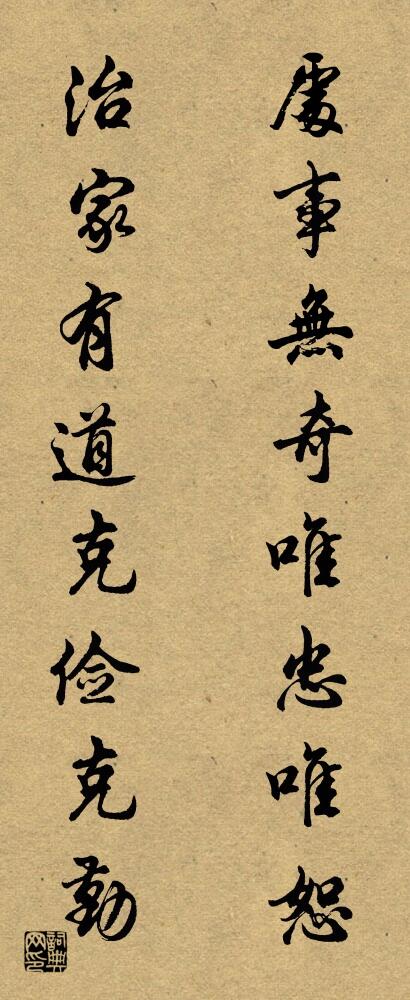 處事無奇唯忠唯恕
治家有道克俭克勤
詞典网印